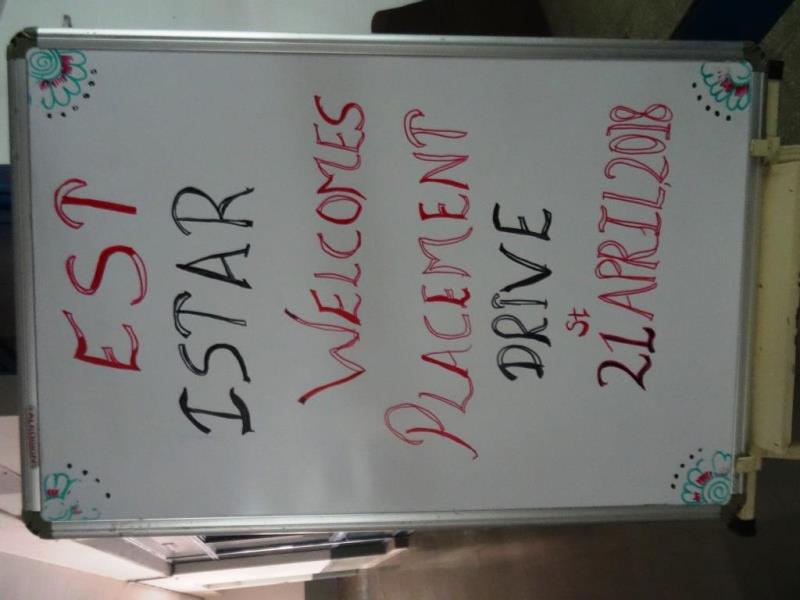 EST
ISTAR
WELCOMES
PLACEMENT
DRIVE
21st APRIL, 2018